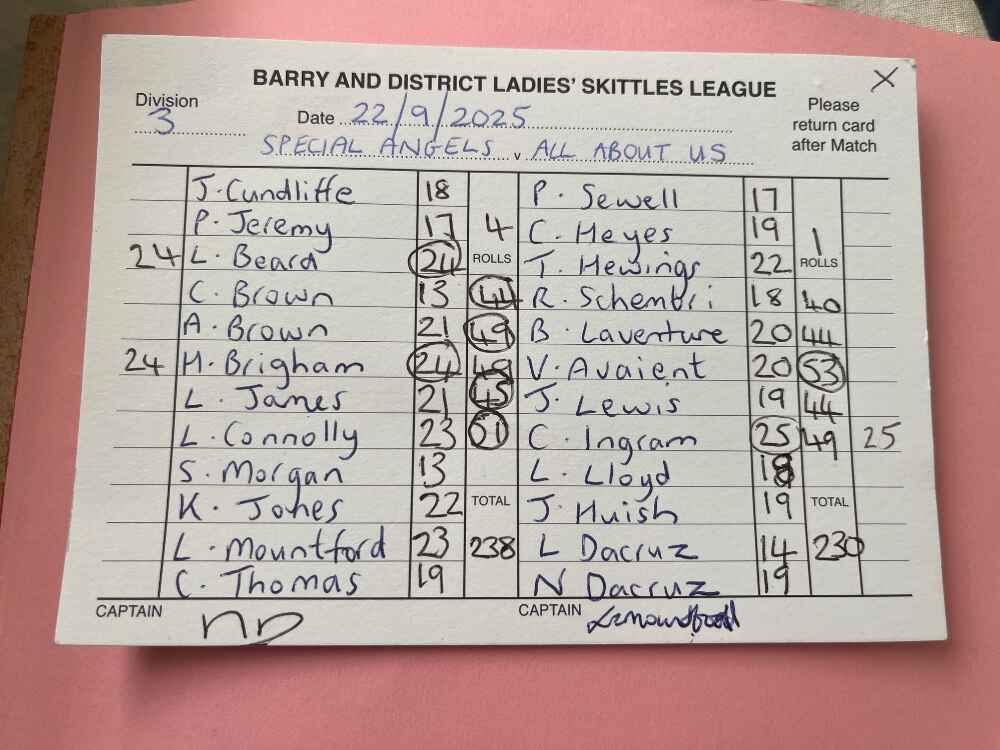 BARRY AND DISTRICT LADIES' SKITTLES LEAGUE X
Division 3
Date 22/9/2025
Please return card after Match
SPECIAL ANGELS v ALL ABOUT US
J. Cundliffe 18 P. Sewell 17
P. Jeremy 17 4 C. Heyes 19 1
24 L. Beard 24 ROLLS T. Hewings 22 ROLLS
C. Brown 13 44 R. Schembri 18 40
A. Brown 21 49 B. Laventure 20 44
24 H. Brigham 24 49 V. Avaient 20 53
L. James 21 45 J. Lewis 19 44
L. Connolly 23 51 C. Ingram 25 49 25
S. Morgan 13 L. Lloyd 18
K. Jones 22 TOTAL J. Huish 19 TOTAL
L. Mountford 23 238 L Dacruz 14 230
C. Thomas 19 N Dacruz 19
CAPTAIN ND CAPTAIN